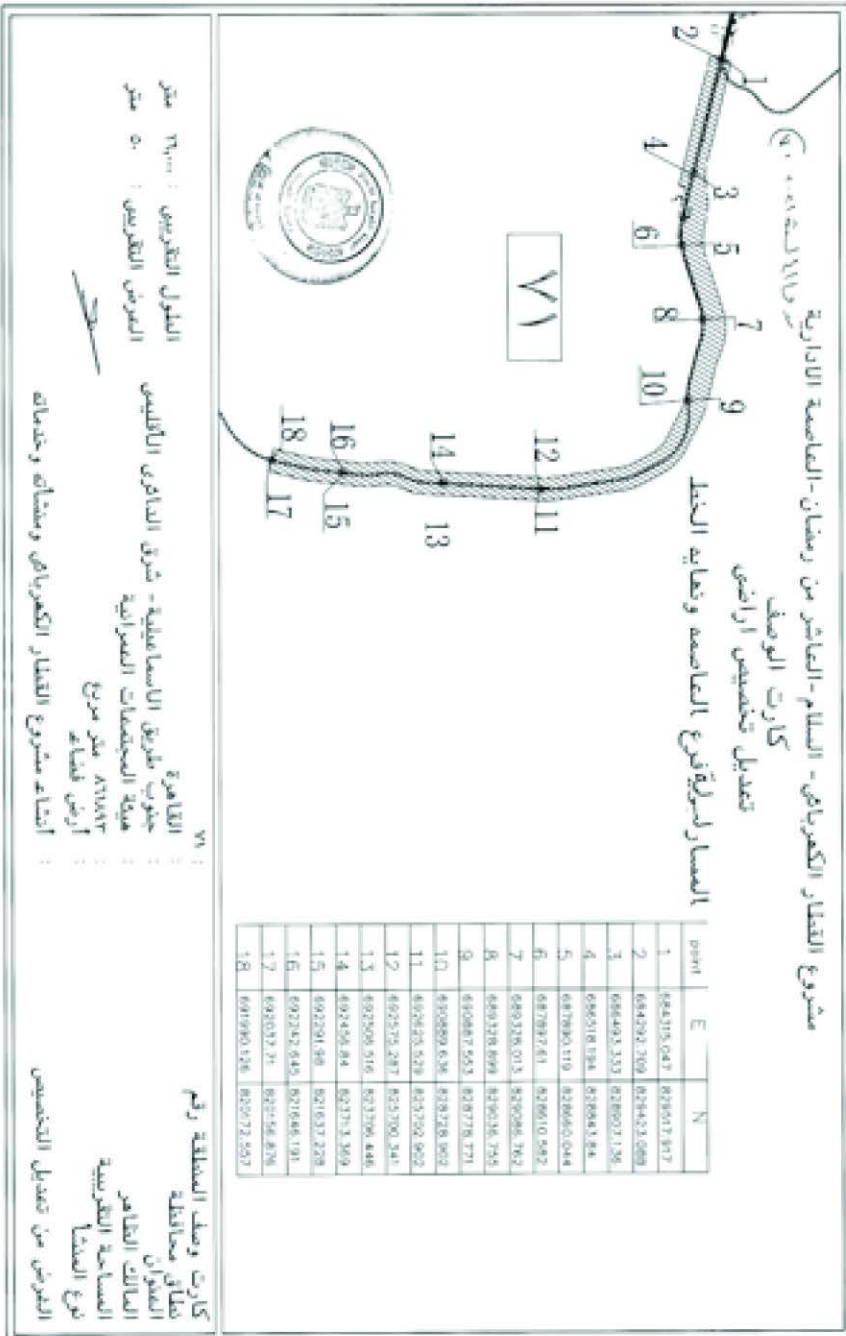 مشروع القطار الكهربائى - السلام - العاشر من رمضان - العاصمة الادارية
كارت الوصف
تعديل تخصيص اراضى
العاصمه ونهايه الخط
1
2
3
4
5
6
7
8
9
10
11
12
13
14
15
16
17
18
٧١
point E N
1 684315.047 829517.917
2 684292.709 829423.088
3 686493.333 828907.136
4 686518.194 828843.84
5 687890.119 828660.044
6 687897.61 828610.582
7 689338.013 829086.762
8 689328.899 829036.755
9 690887.553 828778.771
10 690889.636 828728.902
11 692625.529 825702.902
12 692575.287 825700.341
13 692506.516 823706.446
14 692456.84 823713.369
15 692291.98 821637.228
16 692242.645 821646.191
17 692037.71 820156.876
18 691990.126 820172.557
كارت وصف المنطقة رقم : ٧١
نطاق محافظة : القاهرة
العنوان : جنوب طريق الاسماعيلية - شرق الدائرى الأقليمى
المالك الظاهر : هيئة المجتمعات العمرانية
المساحة التقريبية : ٨٦١٨٩٣ متر مربع
نوع المنشأ : أرض فضاء
الغرض من تعديل التخصيص : أنشاء مشروع القطار الكهربائى ومنشأته وخدماته
الطول التقريبى : متر
العرض التقريبى : ٥٠ متر